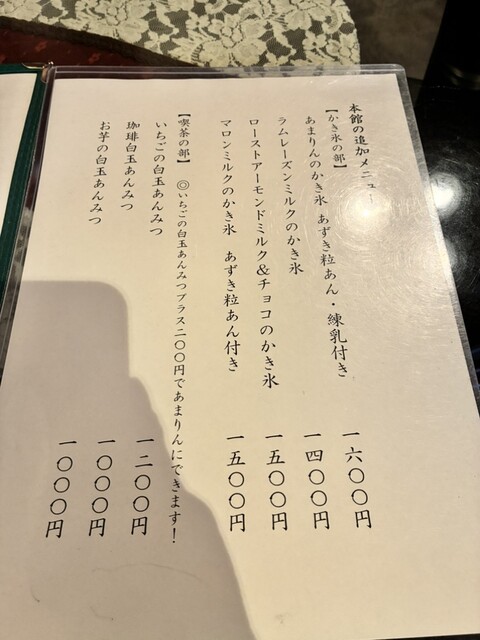 本館の追加メニュー
【かき氷の部】
あまりんのかき氷 あずき粒あん・練乳付き 一六〇〇円
ラムレーズンミルクのかき氷 一四〇〇円
ローストアーモンドミルク&チョコのかき氷 一五〇〇円
マロンミルクのかき氷 あずき粒あん付き 一五〇〇円
【喫茶の部】 ◎いちごの白玉あんみつプラス二〇〇円であまりんにできます!
いちごの白玉あんみつ 一二〇〇円
珈琲白玉あんみつ 一〇〇〇円
お芋の白玉あんみつ 一〇〇〇円